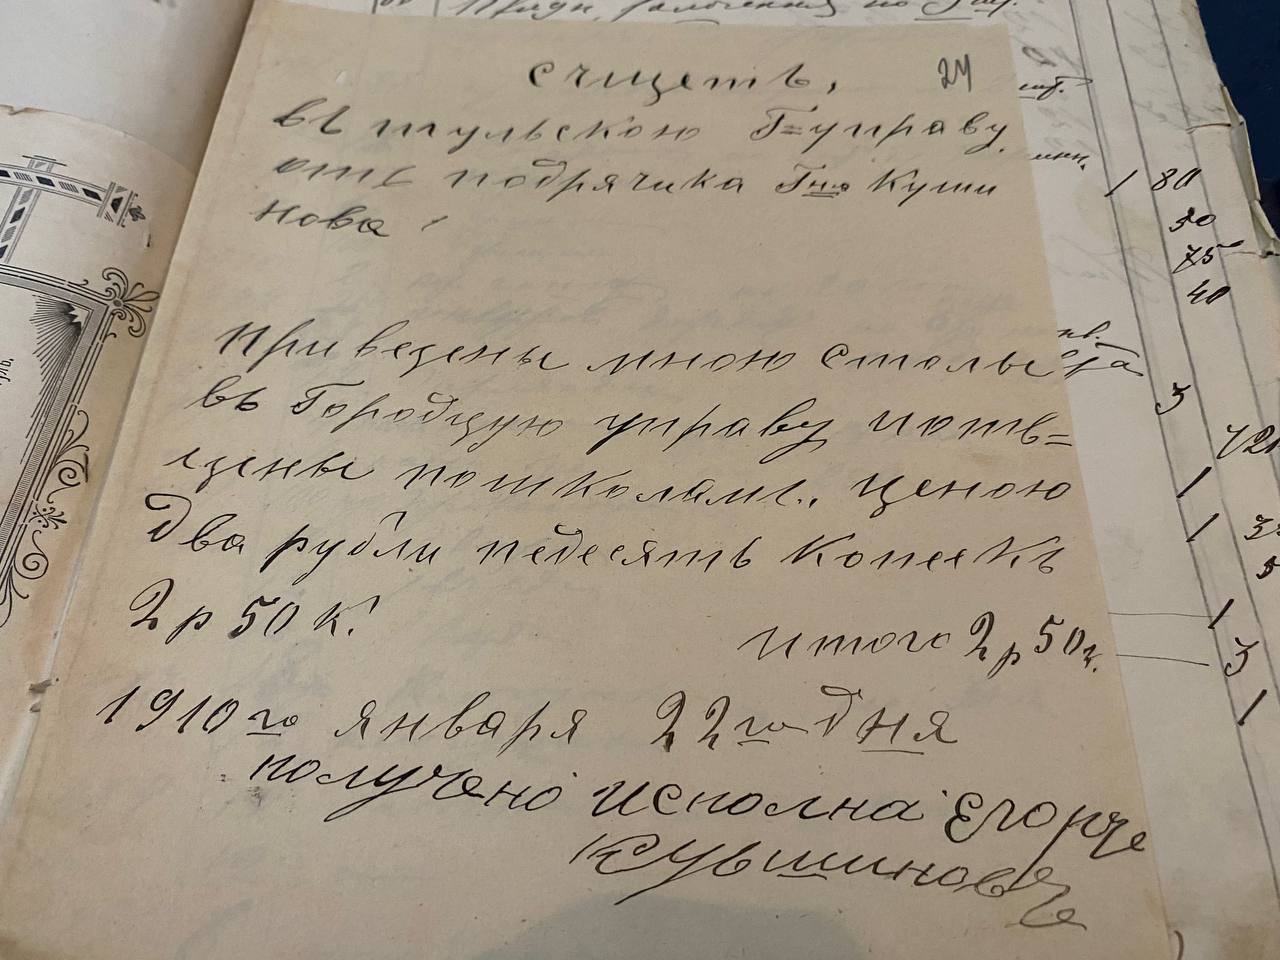 24
счщетъ,
въ тульскою Г=управу,
отъ подрячика Гна Куши
нова!
Приведены мною столы
въ Городцую управу иотв=
ецены пошколамъ., ценою
два рубли педесять Копеекъ
2 р 50 к!
итого 2 р 50 к.
1910 го января 22 го дня
получено исполна Егоръ
Кувшиновъ
1 80
50
75
40
3
1
1
1
3
1